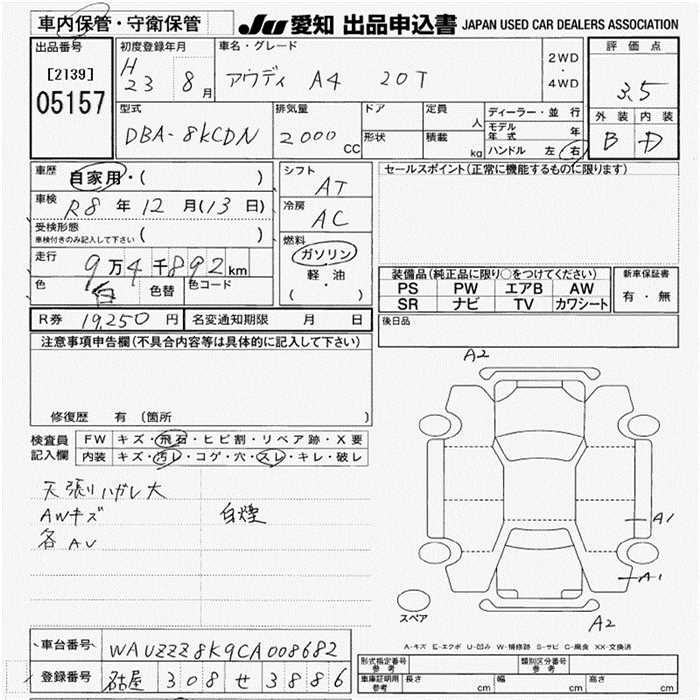 車内保管・守衛保管 JU 愛知 出品申込書 JAPAN USED CAR DEALERS ASSOCIATION
出品番号
[2139]
05157
初度登録年月
H
23 8月
車名・グレード
アウディ A4 20T
2WD
・
4WD
評価点
3.5
外装 内装
B D
型式
DBA-8KCDN
排気量
2000 CC
ドア
形状
定員 人
積載 kg
ディーラー・並行
モデル年式 年
ハンドル 左 右
車歴 自家用・( )
車検 R8年12月(13日)
受検形態
車検付きのみ記入して下さい ( )
走行 9万4千892km
色 白 色替 色コード
R券 19,250円 名変通知期限 月 日
シフト
AT
冷房
AC
燃料
ガソリン
軽・油
( )
セールスポイント(正常に機能するものに限ります)
装備品(純正品に限り○をつけてください)
PS PW エアB AW
SR ナビ TV カワシート
新車保証書
有・無
後日品
注意事項申告欄(不具合内容等は具体的に記入して下さい)
修復歴 有 (箇所
検査員記入欄
FW キズ・飛石・ヒビ割・リペア跡・X要
内装 キズ・汚レ・コゲ・穴・スレ・キレ・破レ
天張りハガレ大
AWキズ 白煙
各AU
A2
A1
A1
A2
スペア
A-キズ E-エクボ U-凹み W-補修跡 S-サビ C-腐食 XX-交換済
車台番号 WAUZZZ8K9CA008682
登録番号 名古屋 308 せ 3886
形式指定番号 参考
類別区分番号 参考
車庫証明用 参考 長さ cm 幅 cm 高さ cm